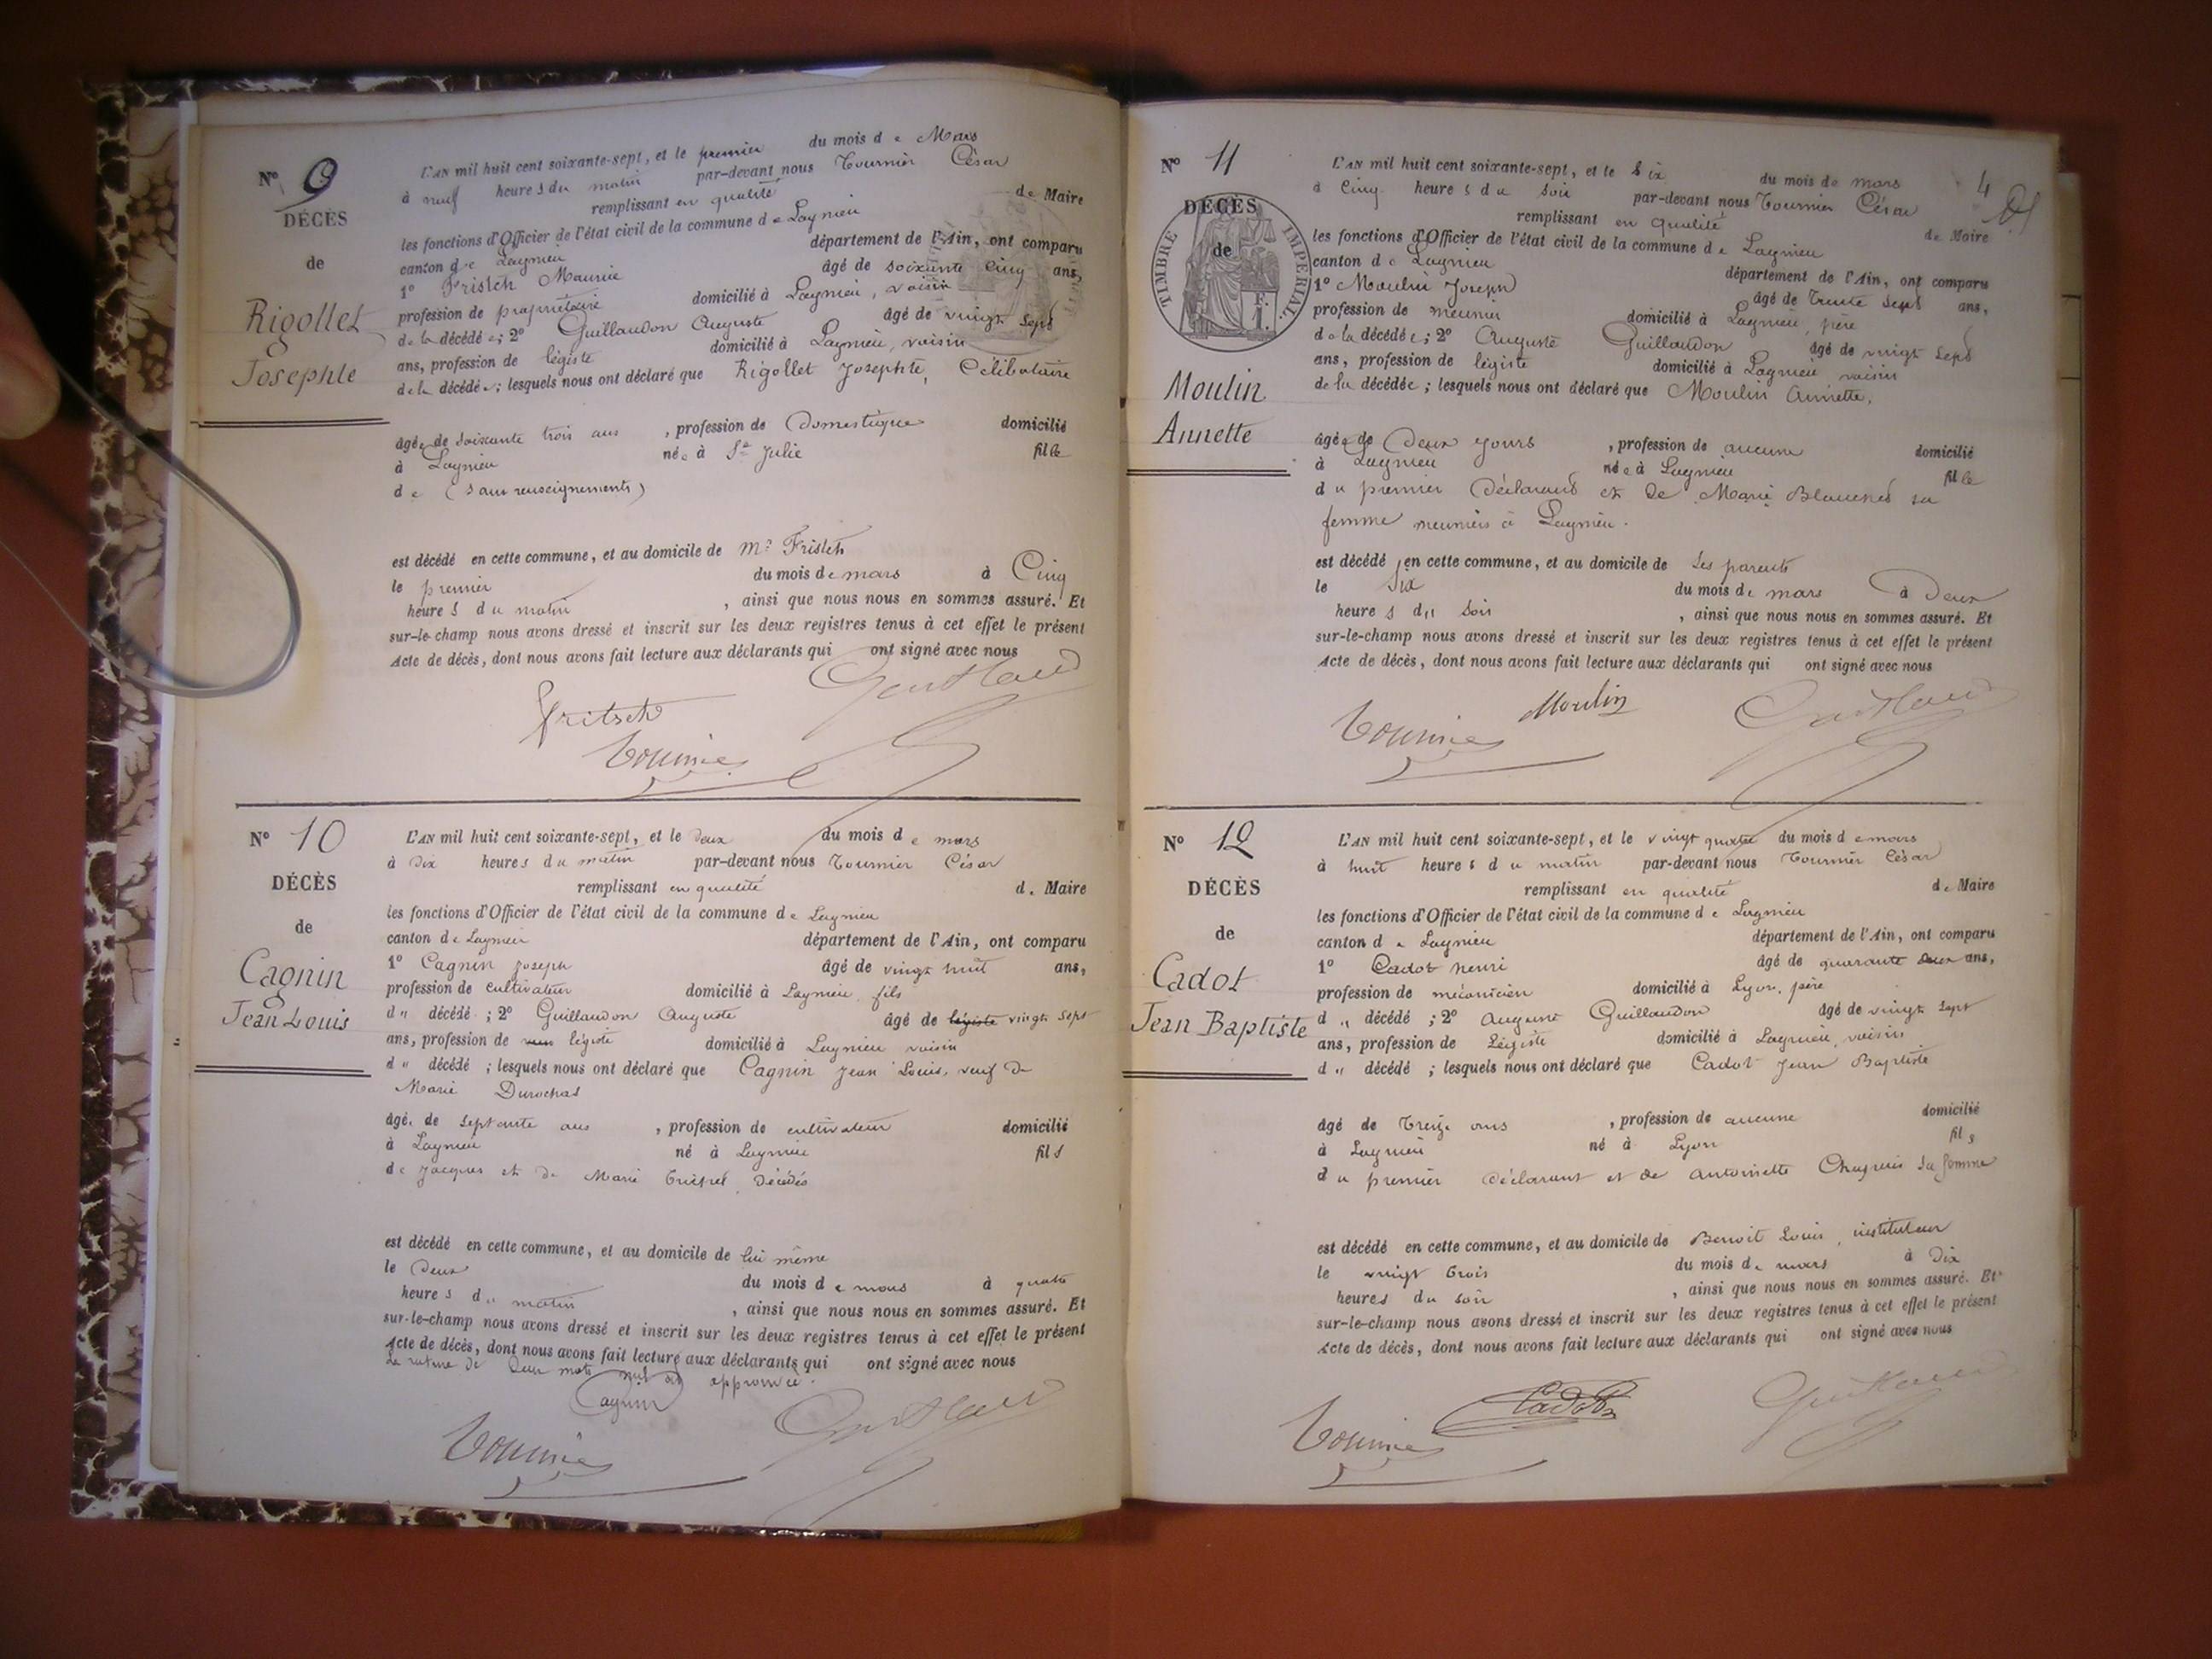 N° 9
DÉCÈS
de
Rigollet
Josephte
L'AN mil huit cent soixante-sept, et le premier du mois de Mars
à neuf heures du matin par-devant nous Tournier César
remplissant en qualité de Maire
les fonctions d'Officier de l'état civil de la commune de Lagnieu
canton de Lagnieu département de l'Ain, ont comparu
1° Fristch Maurice âgé de soixante cinq ans,
profession de propriétaire domicilié à Lagnieu, voisin
de la décédée; 2° Guillaudon Auguste âgé de vingt sept
ans, profession de légiste domicilié à Lagnieu, voisin
de la décédée; lesquels nous ont déclaré que Rigollet Josephte, Célibataire
âgée de soixante trois ans, profession de Domestique domicilié
à Lagnieu née à Ste Julie fille
de (sans renseignements)
est décédé en cette commune, et au domicile de Mr Fristch
le premier du mois de mars à Cinq
heures du matin, ainsi que nous nous en sommes assuré. Et
sur-le-champ nous avons dressé et inscrit sur les deux registres tenus à cet effet le présent
Acte de décès, dont nous avons fait lecture aux déclarants qui ont signé avec nous
fritsch
Tournier
N° 10
DÉCÈS
de
Cagnin
Jean Louis
L'AN mil huit cent soixante-sept, et le deux du mois de mars
à dix heures du matin par-devant nous Tournier César
remplissant en qualité de Maire
les fonctions d'Officier de l'état civil de la commune de Lagnieu
canton de Lagnieu département de l'Ain, ont comparu
1° Cagnin Joseph âgé de vingt huit ans,
profession de cultivateur domicilié à Lagnieu, fils
du décédé; 2° Guillaudon Auguste âgé de légiste vingt sept
ans, profession de légiste domicilié à Lagnieu voisin
du décédé; lesquels nous ont déclaré que Cagnin Jean Louis, veuf de
Marie Durochas
âgé de septante ans, profession de cultivateur domicilié
à Lagnieu né à Lagnieu fils
de Jacques et de Marie décédés
est décédé en cette commune, et au domicile de lui même
le Deux du mois de mars à quatre
heures du matin, ainsi que nous nous en sommes assuré. Et
sur-le-champ nous avons dressé et inscrit sur les deux registres tenus à cet effet le présent
Acte de décès, dont nous avons fait lecture aux déclarants qui ont signé avec nous
La rature de deux mots nuls est approuvée.
Cagnin
Tournier
N° 11
4
DÉCÈS
de
TIMBRE IMPÉRIAL
1 F.
Moulin
Annette
L'AN mil huit cent soixante-sept, et le Six du mois de mars
à Cinq heures du soir par-devant nous Tournier César
remplissant en qualité de Maire
les fonctions d'Officier de l'état civil de la commune de Lagnieu
canton de Lagnieu département de l'Ain, ont comparu
1° Moulin Joseph âgé de Trente sept ans,
profession de meunier domicilié à Lagnieu, père
de la décédée; 2° Auguste Guillaudon âgé de vingt sept
ans, profession de légiste domicilié à Lagnieu voisin
de la décédée; lesquels nous ont déclaré que Moulin Annette,
âgée de Deux jours, profession de aucune domicilié
à Lagnieu née à Lagnieu fille
du premier Déclarant et de Marie sa
femme meuniers à Lagnieu.
est décédé en cette commune, et au domicile de ses parents
le Six du mois de mars à Deux
heures du soir, ainsi que nous nous en sommes assuré. Et
sur-le-champ nous avons dressé et inscrit sur les deux registres tenus à cet effet le présent
Acte de décès, dont nous avons fait lecture aux déclarants qui ont signé avec nous
Moulin
Tournier
N° 12
DÉCÈS
de
Cadot
Jean Baptiste
L'AN mil huit cent soixante-sept, et le vingt quatre du mois de mars
à huit heures du matin par-devant nous Tournier César
remplissant en qualité de Maire
les fonctions d'Officier de l'état civil de la commune de Lagnieu
canton de Lagnieu département de l'Ain, ont comparu
1° Cadot henri âgé de quarante deux ans,
profession de mécanicien domicilié à Lyon, père
du décédé; 2° Auguste Guillaudon âgé de vingt sept
ans, profession de Légiste domicilié à Lagnieu, voisin
du décédé; lesquels nous ont déclaré que Cadot Jean Baptiste
âgé de Treize ans, profession de aucune domicilié
à Lagnieu né à Lyon fils
du premier Déclarant et de Antoinette sa femme
est décédé en cette commune, et au domicile de Benoit Louis, instituteur
le vingt trois du mois de mars à Dix
heures du soir, ainsi que nous nous en sommes assuré. Et
sur-le-champ nous avons dressé et inscrit sur les deux registres tenus à cet effet le présent
Acte de décès, dont nous avons fait lecture aux déclarants qui ont signé avec nous
Cadot
Tournier